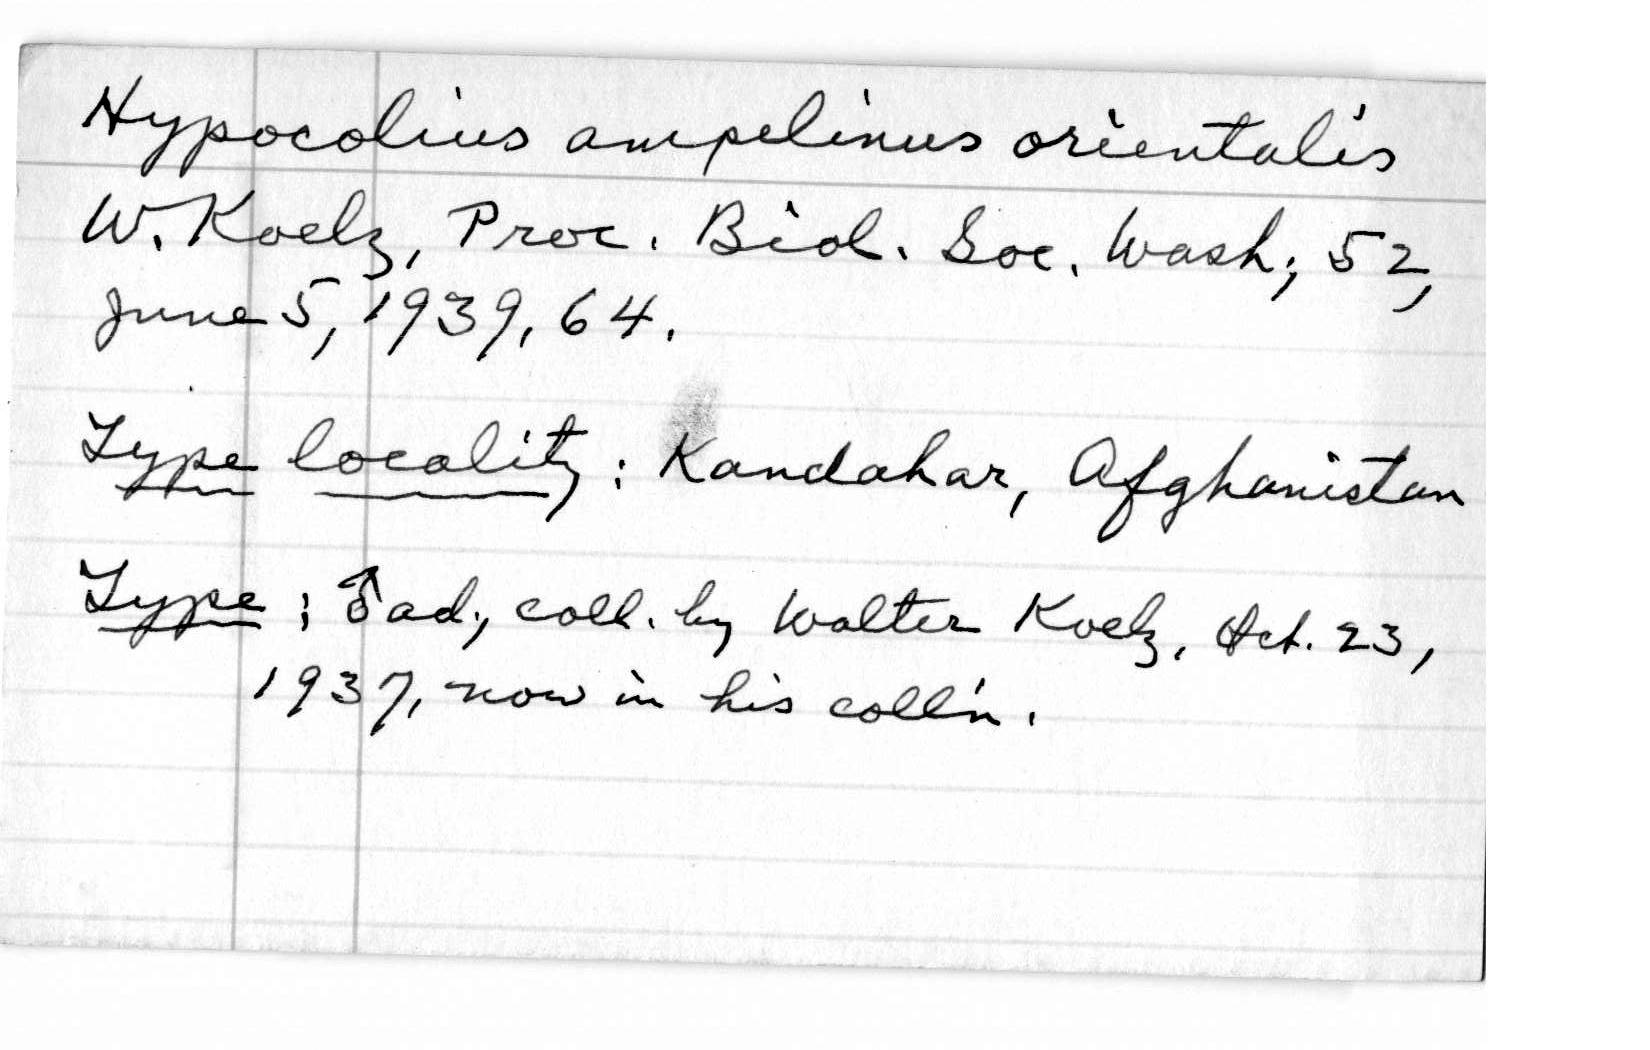 Hypocolius ampelinus orientalis
W. Koelz, Proc. Biol. Soc. Wash., 52,
June 5, 1939, 64.
Type locality: Kandahar, Afghanistan
Type: ♂ ad., coll. by Walter Koelz, Oct. 23,
1937, now in his coll'n.